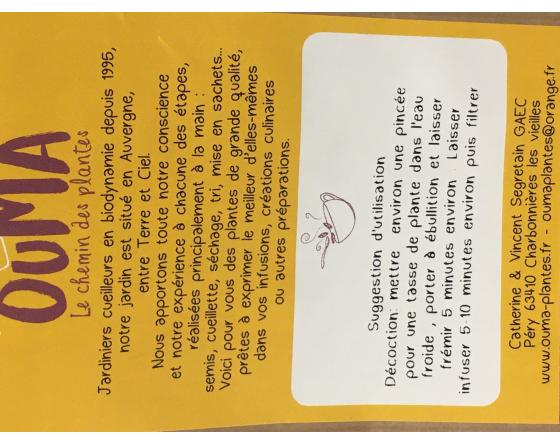 OUMA
Le chemin des plantes
Jardiniers cueilleurs en biodynamie depuis 1995,
notre jardin est situé en Auvergne,
entre Terre et Ciel.
Nous apportons toute notre conscience
et notre expérience à chacune des étapes,
réalisées principalement à la main :
semis, cueillette, séchage, tri, mise en sachets...
Voici pour vous des plantes de grande qualité,
prêtes à exprimer le meilleur d'elles-mêmes
dans vos infusions, créations culinaires
ou autres préparations.
Suggestion d'utilisation
Décoction: mettre environ une pincée
pour une tasse de plante dans l'eau
froide , porter à ébullition et laisser
frémir 5 minutes environ . Laisser
infuser 5-10 minutes environ puis filtrer
Catherine & Vincent Segretain GAEC
Péry 63410 Charbonnières les vieilles
www.ouma-plantes.fr - oumaplantes@orange.fr